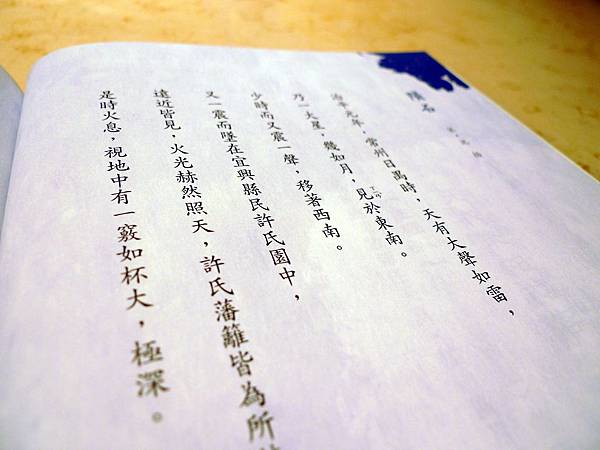 隕石
治平元年，常州日禺時，天有大聲如雷，
乃一大星，幾如月，見於東南。
少時而又震一聲，移著西南。
又一震而墜在宜興縣民許氏園中，
遠近皆見，火光赫然照天，許氏藩籬皆為所
是時火息，視地中有一竅如杯大，極深。